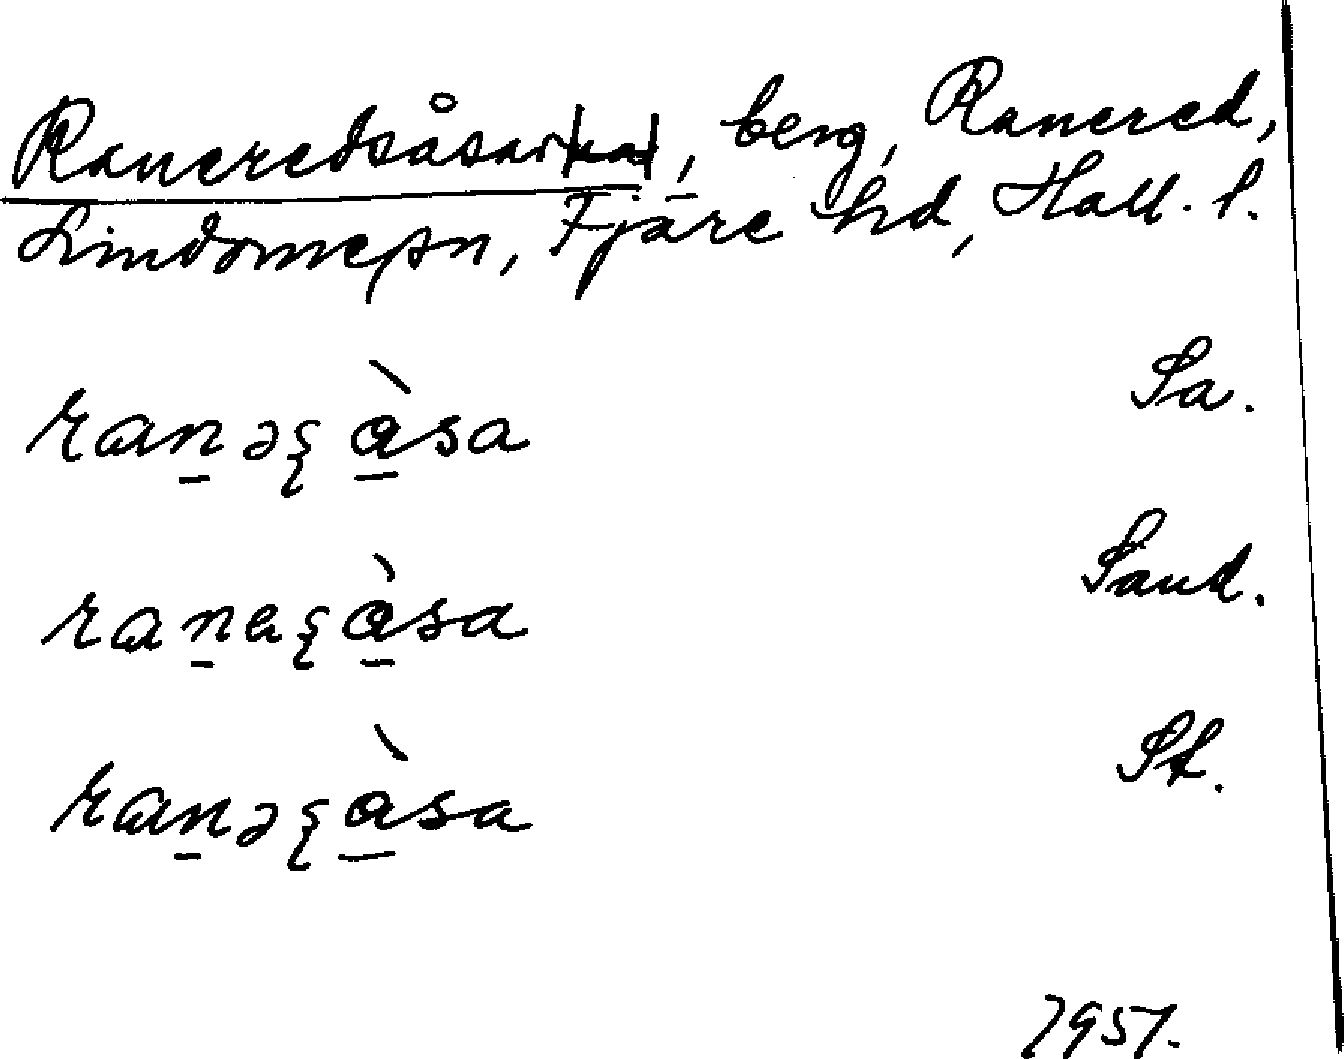 Raneredsåsar|na|, berg, Ranered,
Lindome sn, Fjäre hd, Hall. l.
ranəʂ à̱sa Sa.
ranaʂ à̱sa Sand.
ranəʂ à̱sa St.
1951.